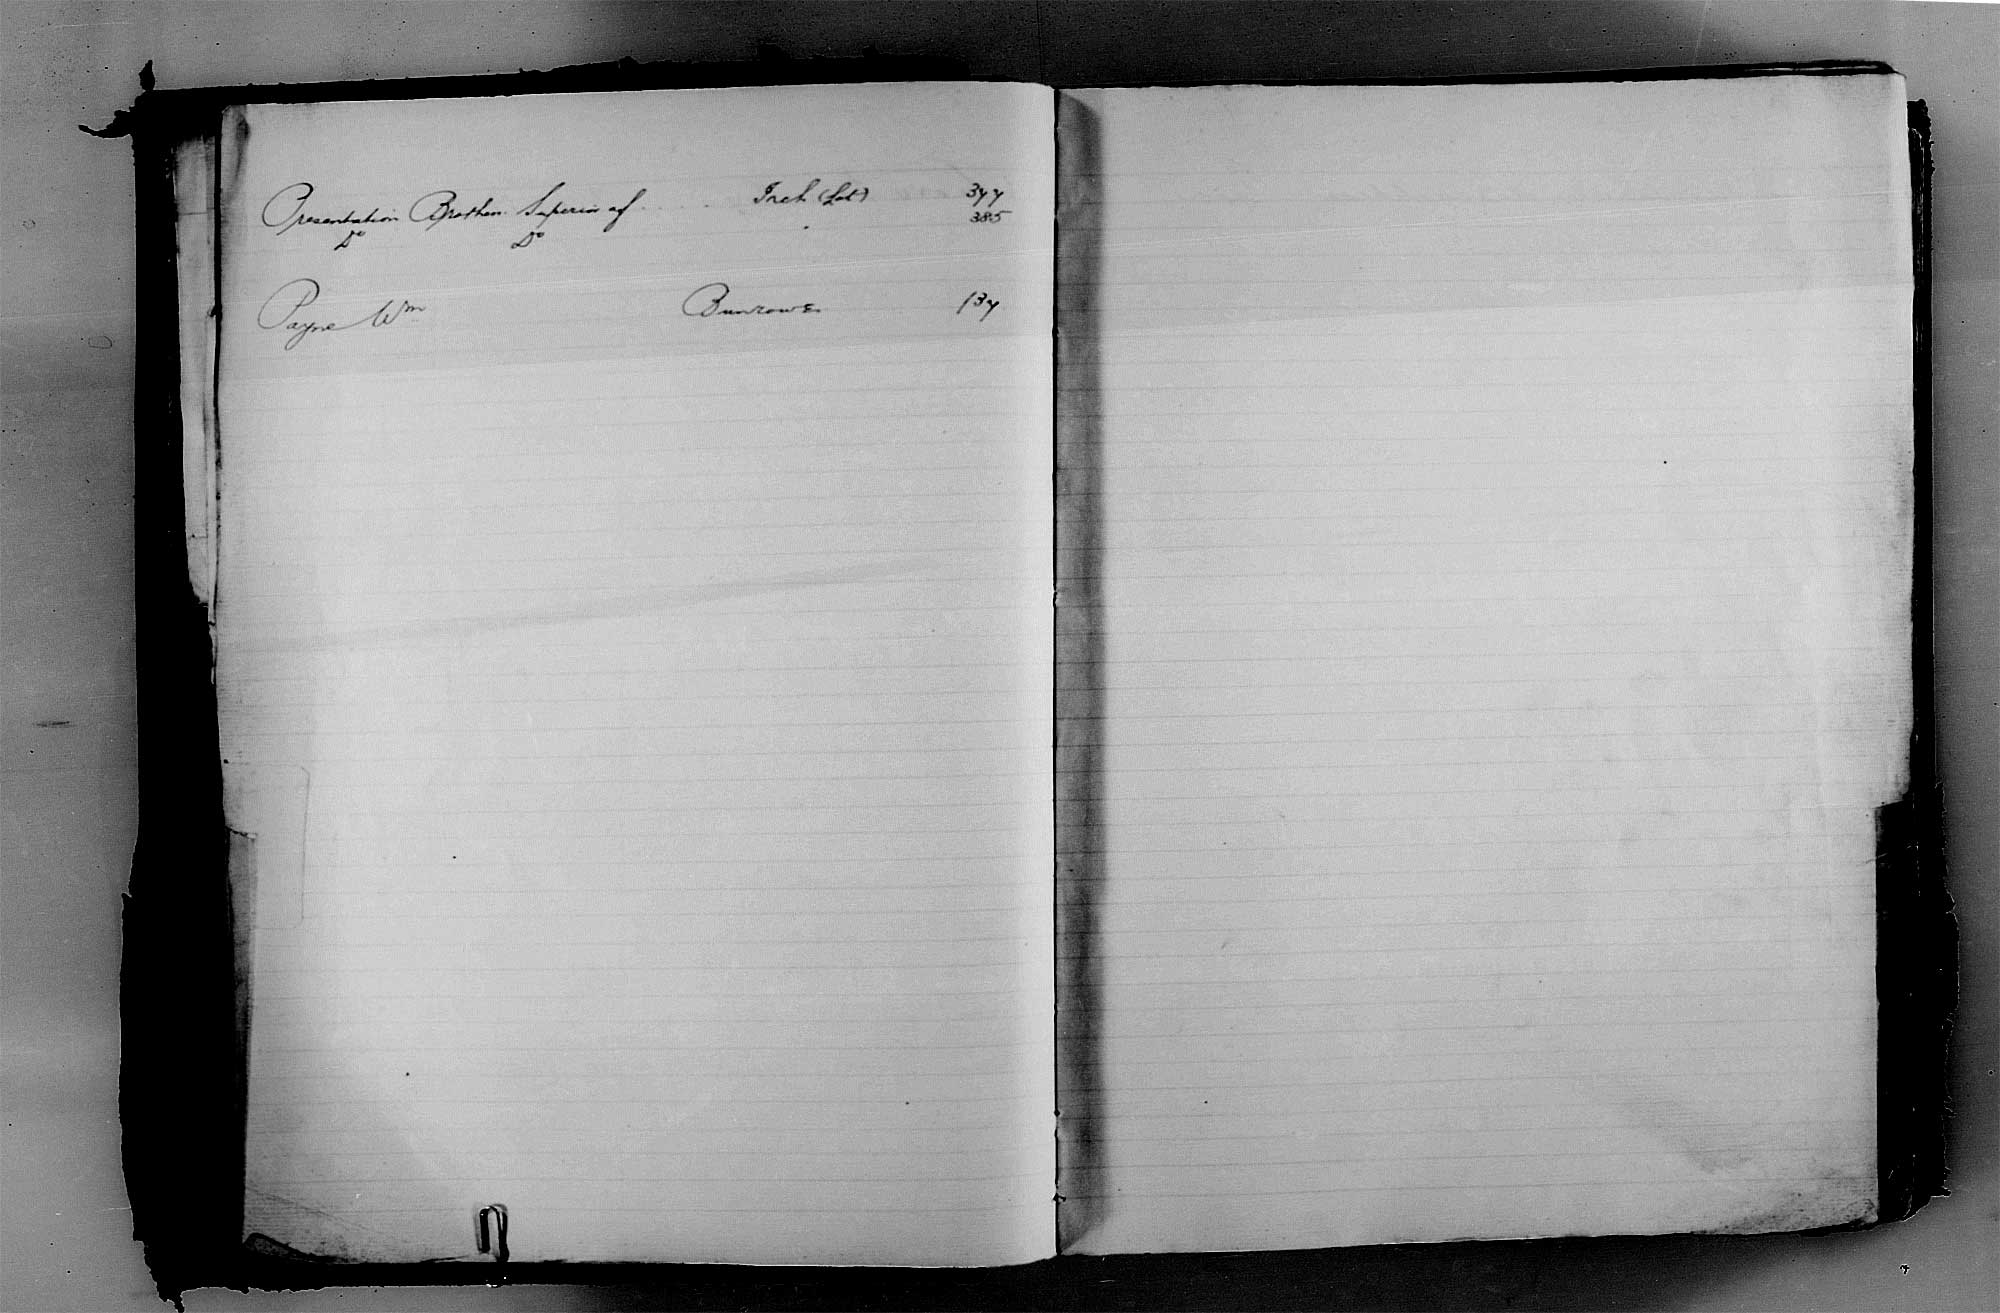 Presentation Brothers. Superior of . . . . Inch (Lot) 377
Do Do 385
Payne Wm Burrowes 137